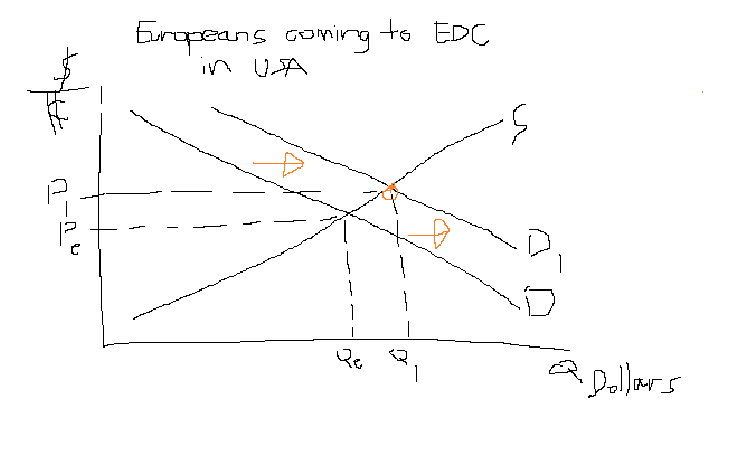 Europeans coming to EDC
in USA
$
S
P1
Pe
D1
D
Qe Q1
Q Dollars